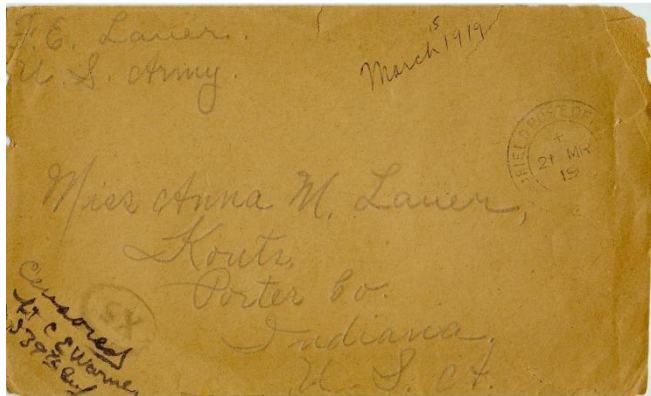 F. E. Lauer.
U. S. Army.
March 15 1919
FIELD POST OFFICE
21 MR
19
Miss Anna M. Lauer,
Kouts,
Porter Co.
Indiana,
U. S. A.
Censored
Lt C E Warner
339th Inf